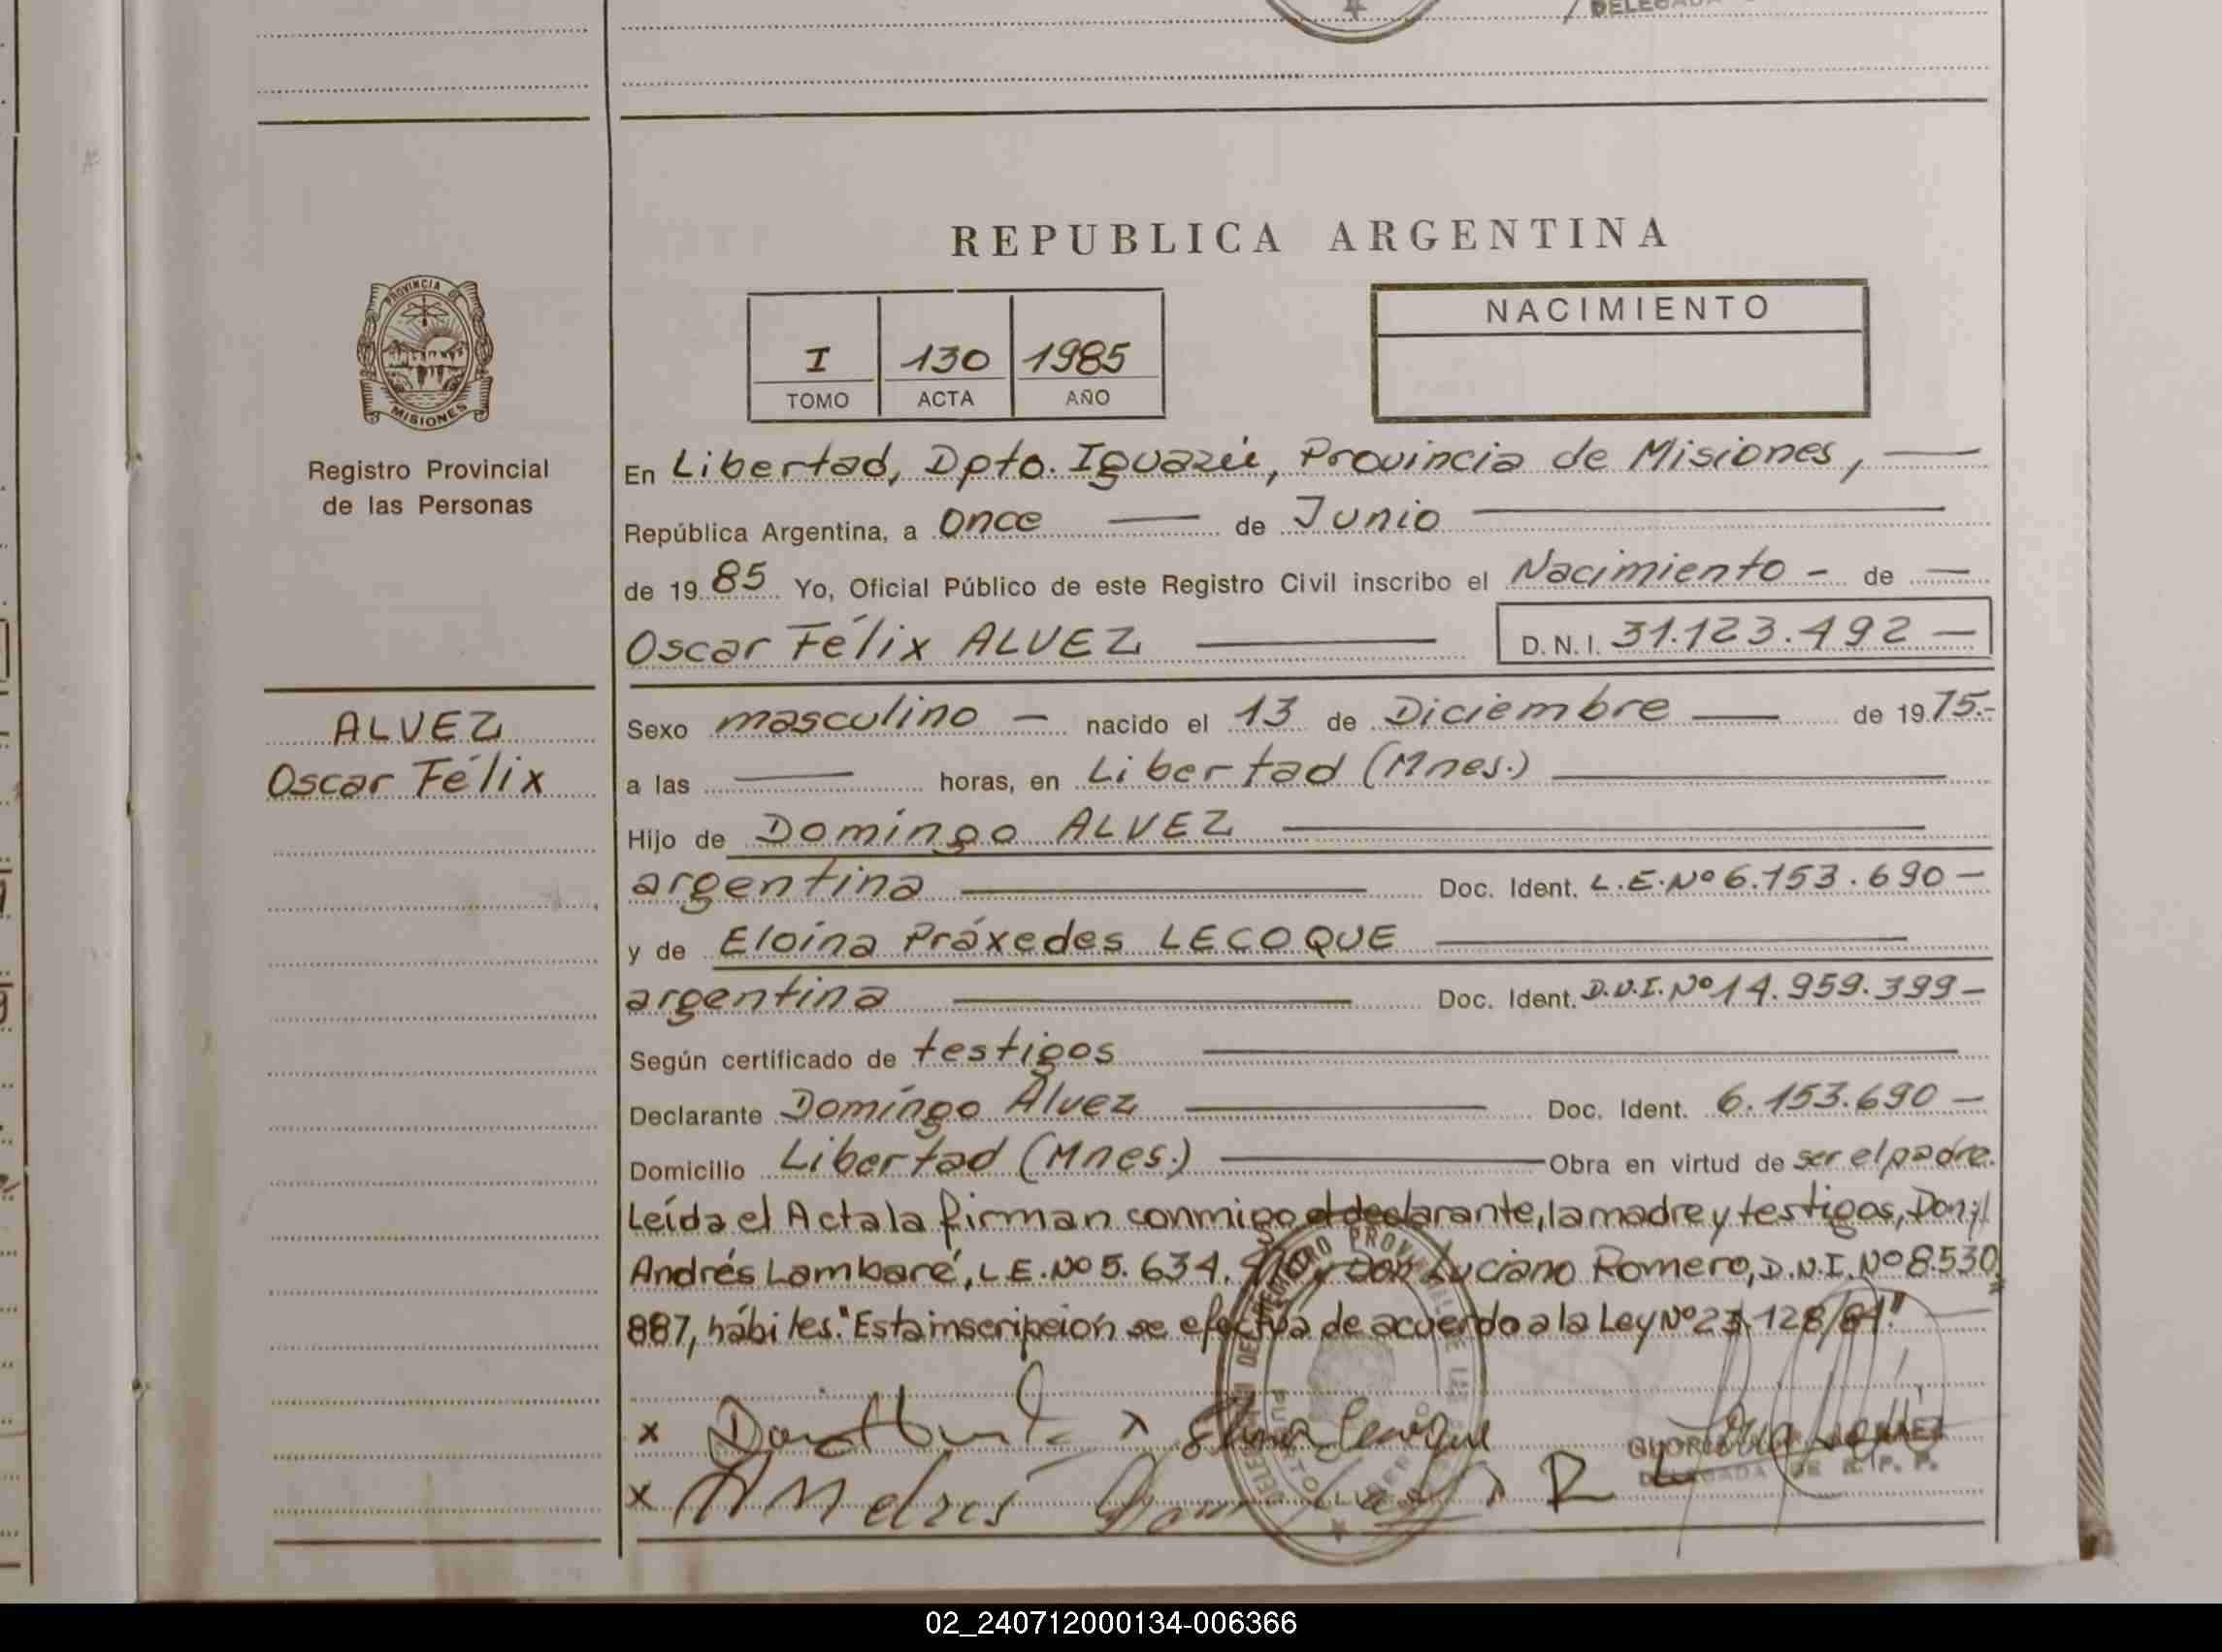 DELEGADA
REPUBLICA ARGENTINA
PROVINCIA DE
MISIONES
Registro Provincial
de las Personas
I 130 1985
TOMO ACTA AÑO
NACIMIENTO
En Libertad, Dpto. Iguazú, Provincia de Misiones,
República Argentina, a once de Junio
de 19 85 Yo, Oficial Público de este Registro Civil inscribo el Nacimiento - de
Oscar Félix ALVEZ D. N. I. 31.123.492 —
ALVEZ
Oscar Félix
Sexo masculino — nacido el 13 de Diciembre de 19 75.-
a las horas, en Libertad (Mnes.)
Hijo de Domingo ALVEZ
argentina Doc. Ident. L.E.Nº 6.153.690 —
y de Eloína Práxedes LECOQUE
argentina Doc. Ident. D.N.I. Nº 14.959.399 —
Según certificado de testigos
Declarante Domingo Alvez Doc. Ident. 6.153.690 —
Domicilio Libertad (Mnes.) Obra en virtud de ser el padre.
Leída el Acta la firman conmigo el declarante, la madre y testigos, Don
Andrés Lambaré, L.E.Nº 5.634. y Don Luciano Romero, D.N.I. Nº 8.530
887, hábiles. "Esta inscripción se efectúa de acuerdo a la Ley Nº 23.128/84"
x x
x Andrés
DELEGADA DE R. P. P.
02_240712000134-006366